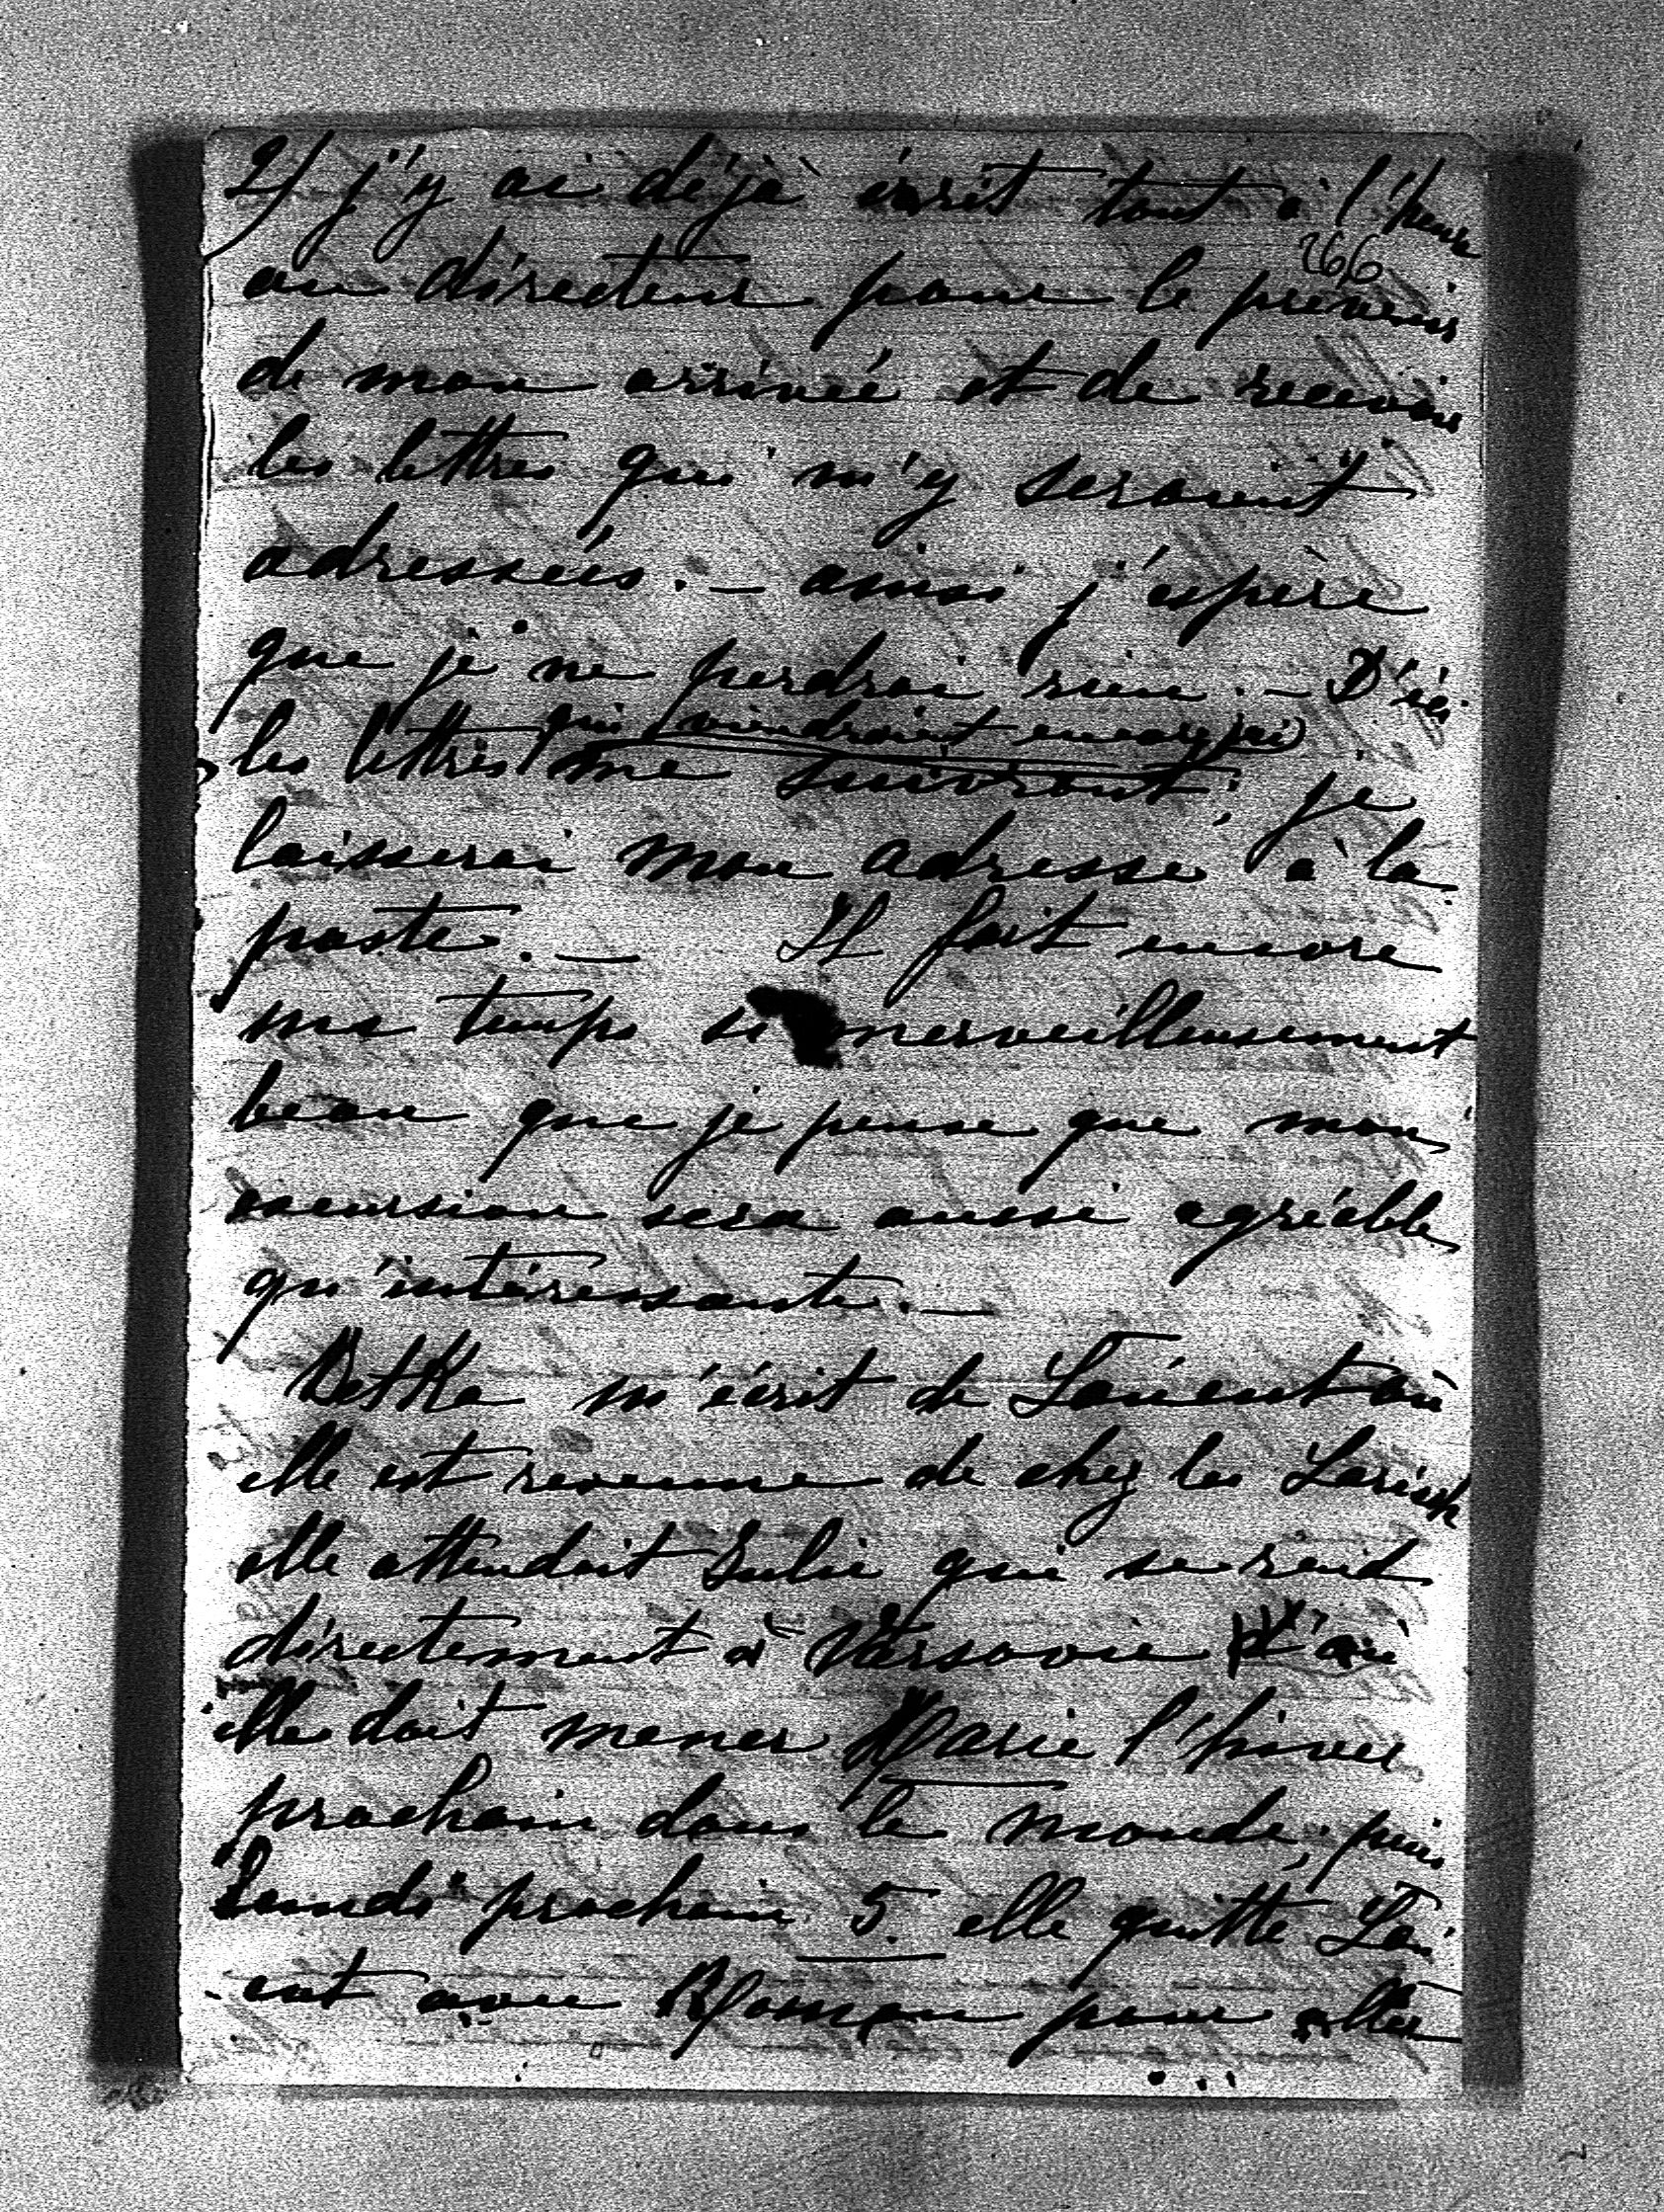 2/ j'y ai déjà écrit tout à l'heure
266
au directeur pour le prévenir
de mon arrivée et de recevoir
les lettres qui m'y seraient
adressées. – ainsi j'espère
que je ne perdrai rien. – D'ici
qui viendraient encore ici
les lettres me suivront; je
laisserai mon adresse à la
poste. — Il fait encore
un temps si merveilleusement
beau que je pense que mon
excursion sera aussi agréable
qu'intéressante. —
Betka m'écrit de Łańcut où
elle est revenue de chez les Larisch
elle attendait Julie qui se rend
directement à Varsovie où
elle doit mener Marie l'hiver
prochain dans le monde, puis
Lundi prochain 5. elle quitte Łań
cut avec Roman pour aller